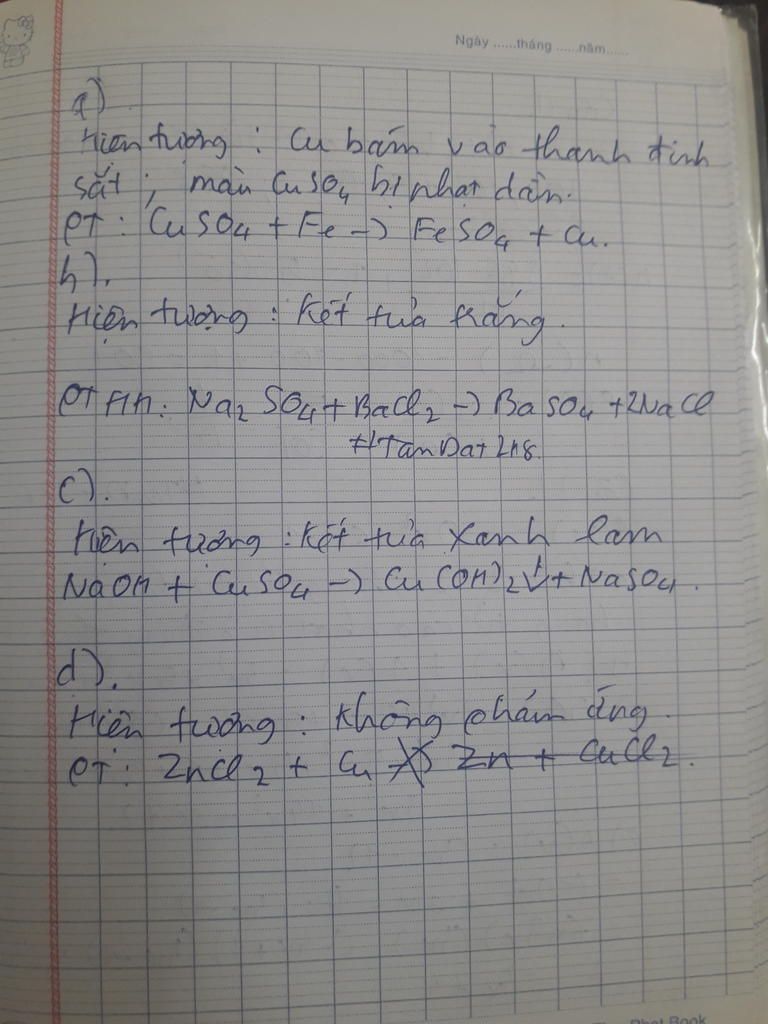 Ngày ......tháng ......năm......
a)
Hiện tượng : Cu bám vào thanh đinh
sắt ; màu CuSO4 bị nhạt dần.
PT : CuSO4 + Fe -> FeSO4 + Cu.
b).
Hiện tượng : kết tủa trắng.
PTHH: Na2SO4 + BaCl2 -> BaSO4 + 2NaCl
#TanDat2k8.
c).
Hiện tượng : kết tủa xanh lam
NaOH + CuSO4 -> Cu(OH)2↓ + NaSO4.
d).
Hiện tượng : không phản ứng.
PT : ZnCl2 + Cu Zn + CuCl2.
Book